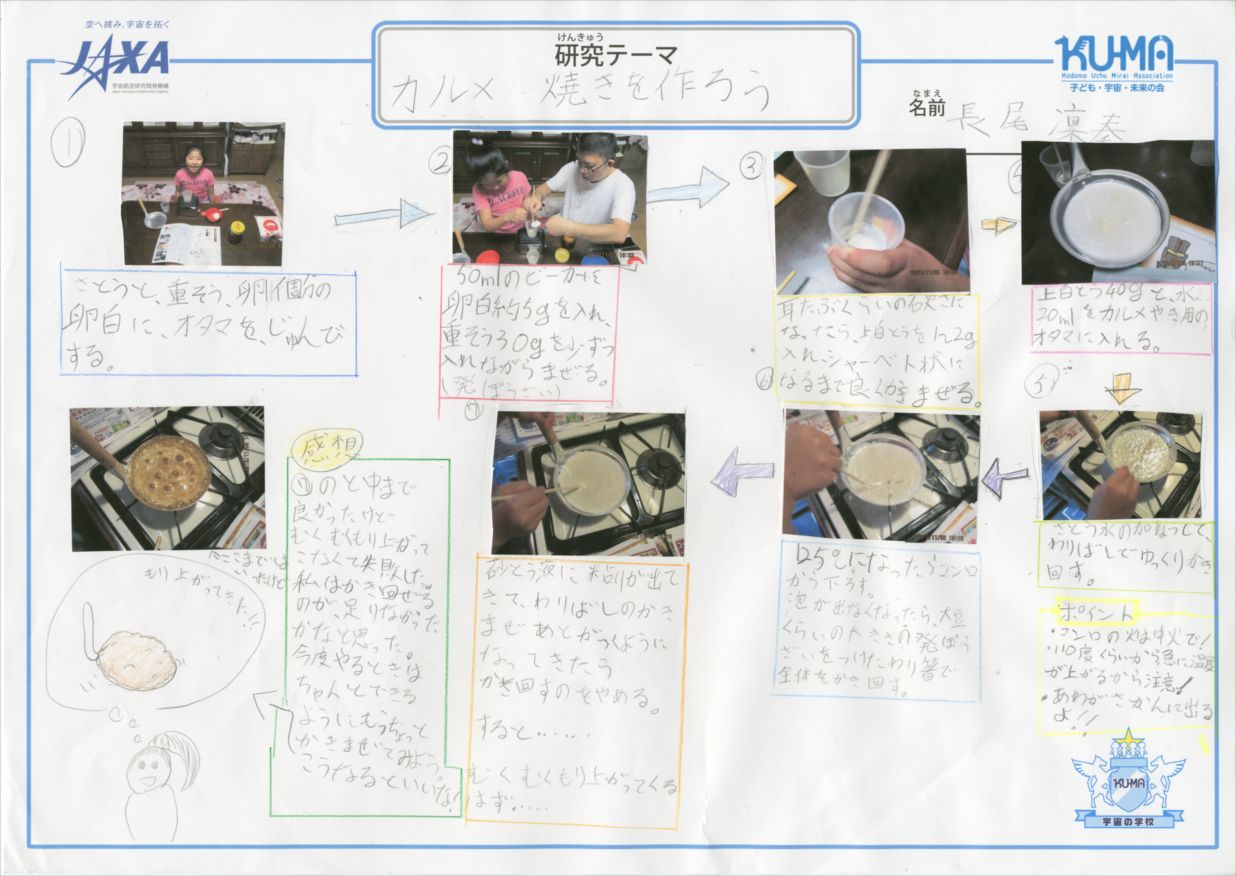 空へ挑み、宇宙を拓く
JAXA
宇宙航空研究開発機構
Japan Aerospace Exploration Agency
けんきゅう
研究テーマ
カルメ焼きを作ろう
KU-MA
Kodomo Uchu Mirai Association
子ども・宇宙・未来の会
なまえ
名前
長尾 凜奏
①
さとうと、重そう、卵1個分の
卵白に、オタマを、じゅんび
する。
②
50mlのビーカーに
卵白約5gを入れ、
重そう30gを少ずつ
入れながらまぜる。
(発ぽうざい)
③
耳たぶくらいの固さに
なったら、上白とうを1~2g
入れ、シャーベト状に
なるまで良くかきまぜる。
④
上白とう40gと、水
20mlをカルメやき用の
オタマに入れる。
⑤
さとう水のかねつして、
わりばしでゆっくりかき
回す。
ポイント
・コンロの火は中火で!
・110度くらいから急に温度
が上がるから注意!
・あわがさかんに出る
よ!!
⑥
125℃になったらコンロ
から下ろす。
泡が出なくなったら、大豆
くらいの大きさの発ぽう
ざいをつけたわり箸で
全体をかき回す。
⑦
砂とう液に粘りが出て
きて、わりばしのかき
まぜあとがつくように
なってきたら
かき回すのをやめる。
すると……
むくむくもり上がってくる
はず……
感想
⑦のと中まで
良かったけど
むくむくもり上がって
こなくて失敗した。
私はかき回ぜる
のが、足りなかった
かなと思った。
今度やるときは
ちゃんとできる
ようにもうちょっと
かきまぜてみよう。
こうなるといいな!
ここまでは
いったけど
もり上がってきた!!
KU-MA
宇宙の学校